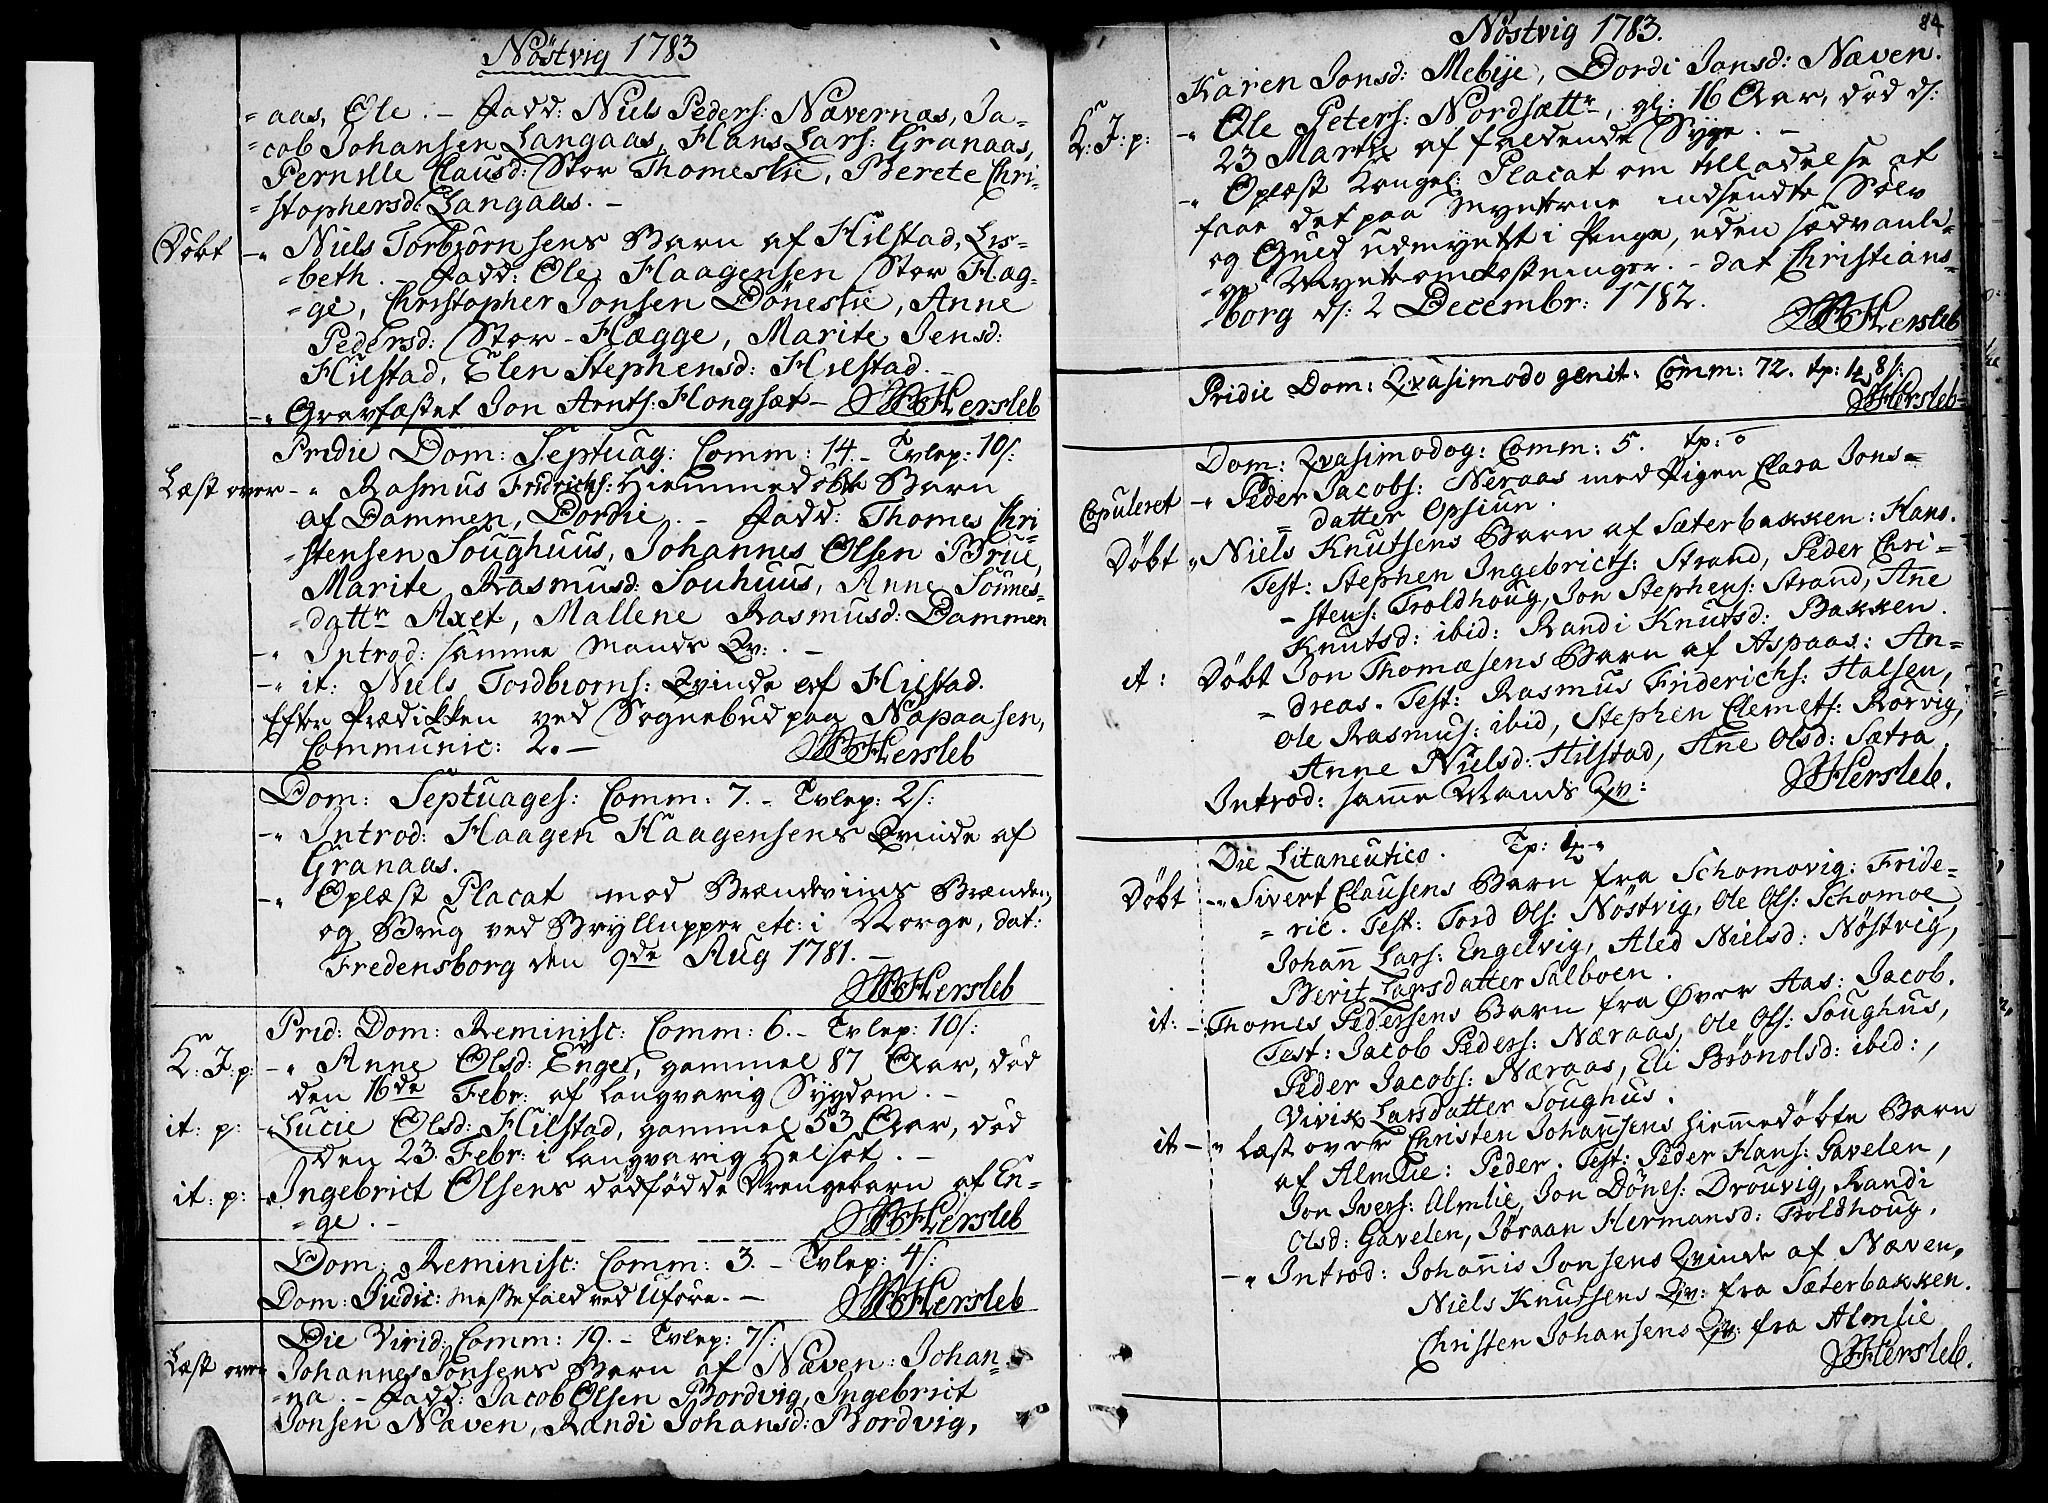 Nöstvig 1783
=aas, Ole. - Fadd: Niels Peders: Navernæs, Ja-
=cob Johansen Langaas, Hans Lars: Granaas,
Pernille Clausd: Stor Thomeslie, Berete Chri-
=stophersd: Langaas. -
Döbt -" Niels Torbjörnsens Barn af Hilstad, Lis-
=beth. - Fadd: Ole Haagensen Stor Hæg-
=ge, Christopher Jonsen Döneslie, Anne
Pedersd: Stor-Hægge, Marite Jensd:
Hilstad, Elen Stephensd: Hilstad. -
-" Gravfæstet Jon Arnts: Hongsæt - Hersleb
Pridie Dom: Septuag: Comm: 14. - Tvlep: 10/:
Læst over -" Rasmus Fridrichs: Hiemmedöbte Barn
af Dammen, Dordie. - Fadd: Thomes Chri-
=stensen Soughuus, Johannes Olsen Brue,
Marite Rasmusd: Souhuus, Anne Sönnes-
=dattr Axet, Mallene Rasmusd: Dammen
-" Introd: samme Mands Qv: . -
-" it: Niels Tordbiorns: Qvinde af Hilstad.
Efter Prædikken ved Sognebud paa Napaasen,
Communic: 2. - Hersleb
Dom: Septuages: Comm: 7. - Tvlep: 2/:
-" Introd: Haagen Haagensens Qvinde af
Granaas.
-" Oplæst Placat mod Brændeviins Brænden,
og Brug ved Brylluppper etc: i Norge, dat:
Fredensborg den 9de Aug 1781. -
Hersleb
Prid: Dom: Reminisc: Comm: 6. - Tvlep: 10/:
K: J: p: -" Anne Olsd: Enger, gammel 87 Aar, död
den 16de Febr: af langvarig Sygdom. -
it: p: - Lucie Olsd: Hilstad, gammel 53 Aar, död
den 23. Febr: i langvarig Helsot. -
it: p: - Ingebrict Olsens dödfödde Drengebarn af En-
=ge. - Hersleb
Dom: Reminisc: Comm: 3. - Tvlep: 4/:
Dom: Judic: Messefald ved Uföre. - Hersleb
Die Virid: Comm: 19. - Tvlep: 7/:
Læst over Johannes Jonsens Barn af Næven: Johan-
=na. - Fadd: Jacob Olsen Bordvig, Ingebrict
Jonsen Næven, Randi Johansd: Bordvig,
84
Nöstvig 1783.
Karen Jonsd: Mebÿe, Dordi Jonsd: Næven.
K: J: p: -" Ole Peters: Nordsættr, gl: 16 Aar, död d:
23 Martii af faldende Syge. -
-" Oplæst Kongel: Placat om tilladelse at
faae det paa Mynterne indsendte Sölv
og Guld udmyntet i Penge, uden sædvanli-
=ge Myntomkostninger. - dat Christians-
=borg d: 2 Decembr: 1782.
Hersleb
Pridie Dom: Qvasimodo genit: Comm: 72. tp: 8/:
Hersleb
Dom: Qvasimodog: Comm: 5. tp: 0
Copuleret -" Peder Jacobs: Neraas med Pigen Clara Jons=
=datter Opsiun.
Döbt " Niels Knutsens Barn af Sæterbakken: Hans.
Test: Stephen Ingebricts: Strand, Peder Chri-
=stens: Troldhoug, Jon Stephens: Strand, Ane
Knutsd: ibid: Randi Knutsd: Bakken.
it: Döbt Jon Thomæsens Barn af Aspaas: An=
=dreas. Test: Rasmus Friderichs: Halsen,
Ole Rasmus: ibid, Stephen Clemets: Rörvig,
Anne Nielsd: Hilstad, Ane Olsd: Sætra.
Introd: same Mands Qv: Hersleb.
Die Litaneutico. Tp:
Döbt -" Sivert Clausens Barn fra Schomovig: Fride=
=ric. Test: Tord Ols: Nöstvig, Ole Ols: Schomoe,
Johann Lars: Engelvig, Aled Nielsd: Nöstvig,
Berit Larsdatter Salboen.
it: - Thomes Pedersens Barn fra Øver Aas: Jacob.
Test: Jacob Peders: Næraas, Ole Ols: Soughus,
Peder Jacobs: Næraas, Eli Brönolsd: ibid:,
Vivik Larsdatter Soughus.
it - " læst over Christen Johansens hiemmedöbte Barn
af Almlie: Peder. Test: Peder Hans: Gavelen,
Jon Ivers: Almlie, Jon Dönes: Drouvig, Randi
Olsd: Gavelen, Jöraan Hermansd: Troldhoug.
-" Introd: Johanis Jonsens Qvinde af Næven,
Niels Knutsens Qv: fra Sæterbakken.
Christen Johansens Qv: fra Almlie
Hersleb.